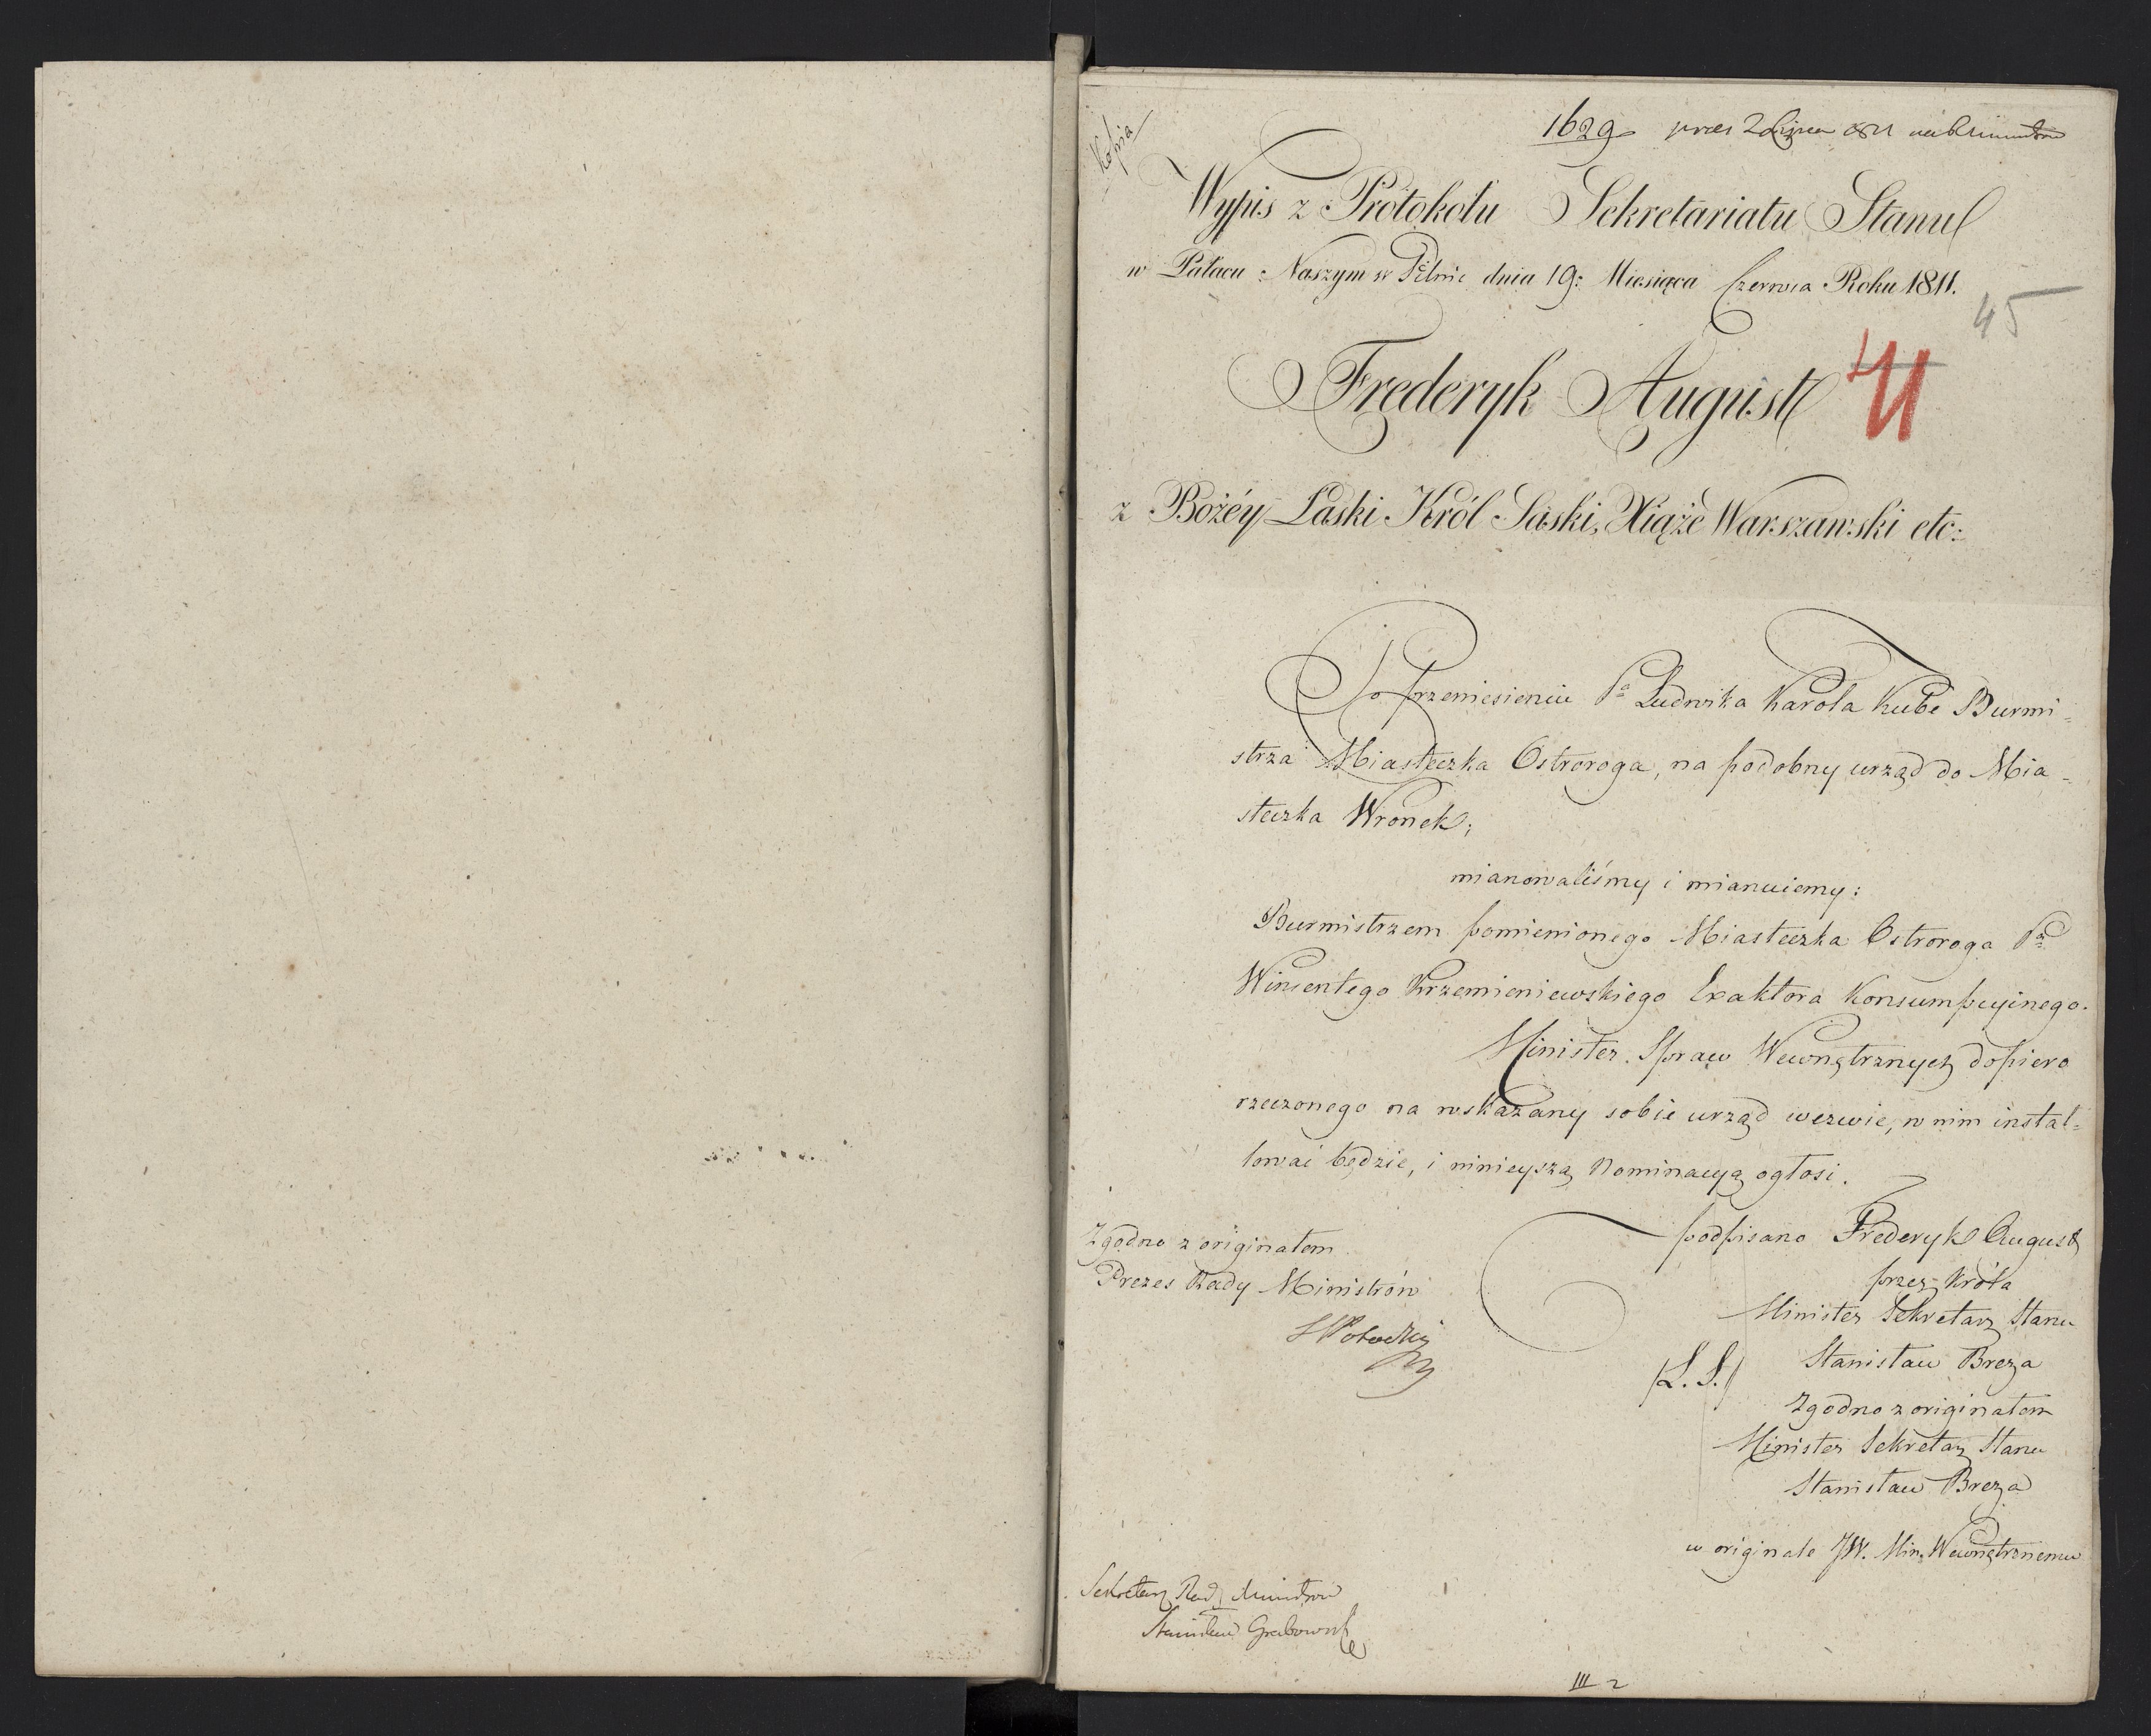 Kopia
1629 prze: 2 Lipca 811
Wypis z Protokołu Sekretariatu Stanu
w Pałacu Naszym w Pilnic dnia 19: Miesiąca Czerwca Roku 1811.
45
41
Frederyk August
z Bożéy Łaski Król Saski, Xiąże Warszawski etc:
Po przeniesieniu Pa Ludwika Karola Kube Burmi=
strza Miasteczka Ostroroga, na podobny urząd do Mia=
steczka Wronek;
mianowaliśmy i mianuiemy:
Burmistrzem pomienionego Miasteczka Ostroroga Pa
Wincentego Krzemieniewskiego Exaktora Konsumpcyinego.
Minister Spraw Wewnętrznych dopiero
rzeczonego na wskazany sobie urząd wezwie, w nim instal=
lować będzie, i ninieyszą Nominacyą ogłosi.
podpisano Frederyk August
przez Króla
Minister Sekretarz Stanu
(L. S.) Stanisław Breza
Zgodno z originałem
Minister Sekretarz Stanu
Stanisław Breza
w originale JW. Min. Wewnętrznemu
Zgodno z originałem
Prezes Rady Ministrów
S Potocki
Sekretarz Rady Ministrów
Stanisław Grabowski
III 2